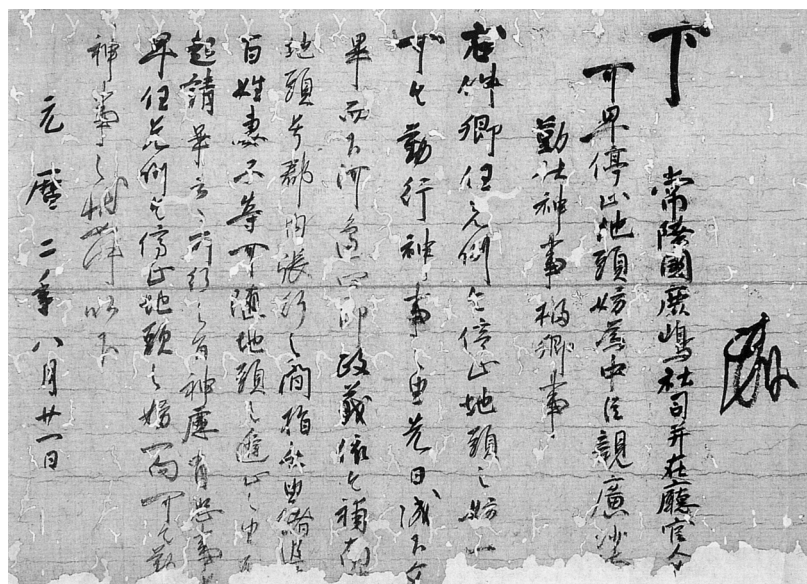 下 常陸國鹿嶋社司并在廳官人
可早停止地頭妨為中臣親廣沙汰
勤仕神事橘郷事
右件郷任先例令停止地頭之妨一
可令勤行神事之由先日成下文
畢而下河邊四郎政義依令補南
地頭号郡内張行之間
百姓妻子等可随地頭之進止之由
起請畢云々所行之旨神慮有恐事
早任先例令停止地頭之妨一向可令勤
神事之状以下
元暦二年八月廿一日